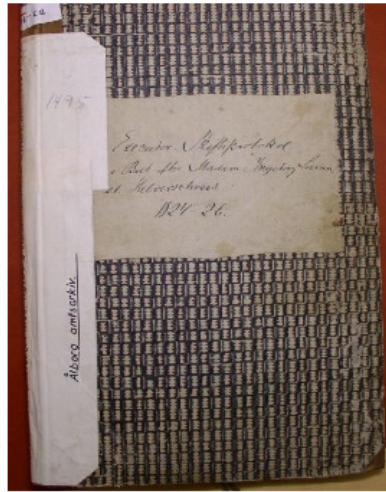 1495
Executor Skifteprotokol
i Boet efter Madam Ingeborg
1824 26.
Ålborg amtsarkiv.